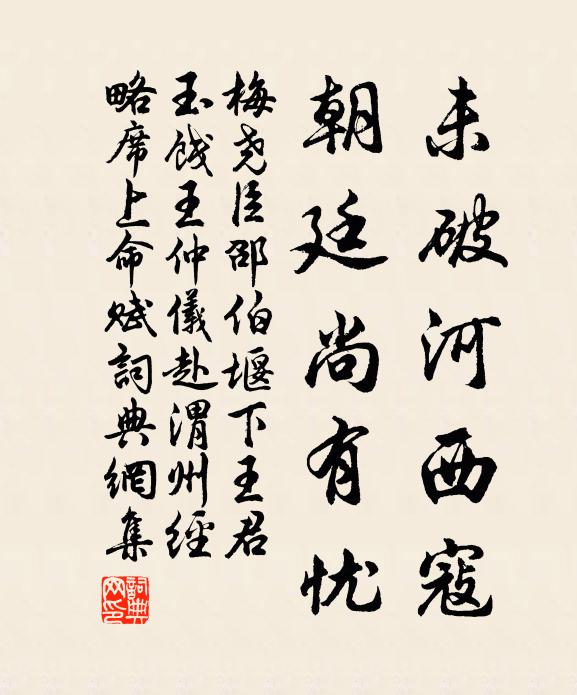 未破河西寇
朝廷尚有忧
梅尧臣邵伯堰下王君
玉餞王仲儀赴渭州經
略席上命赋詞典網集
詞典网印